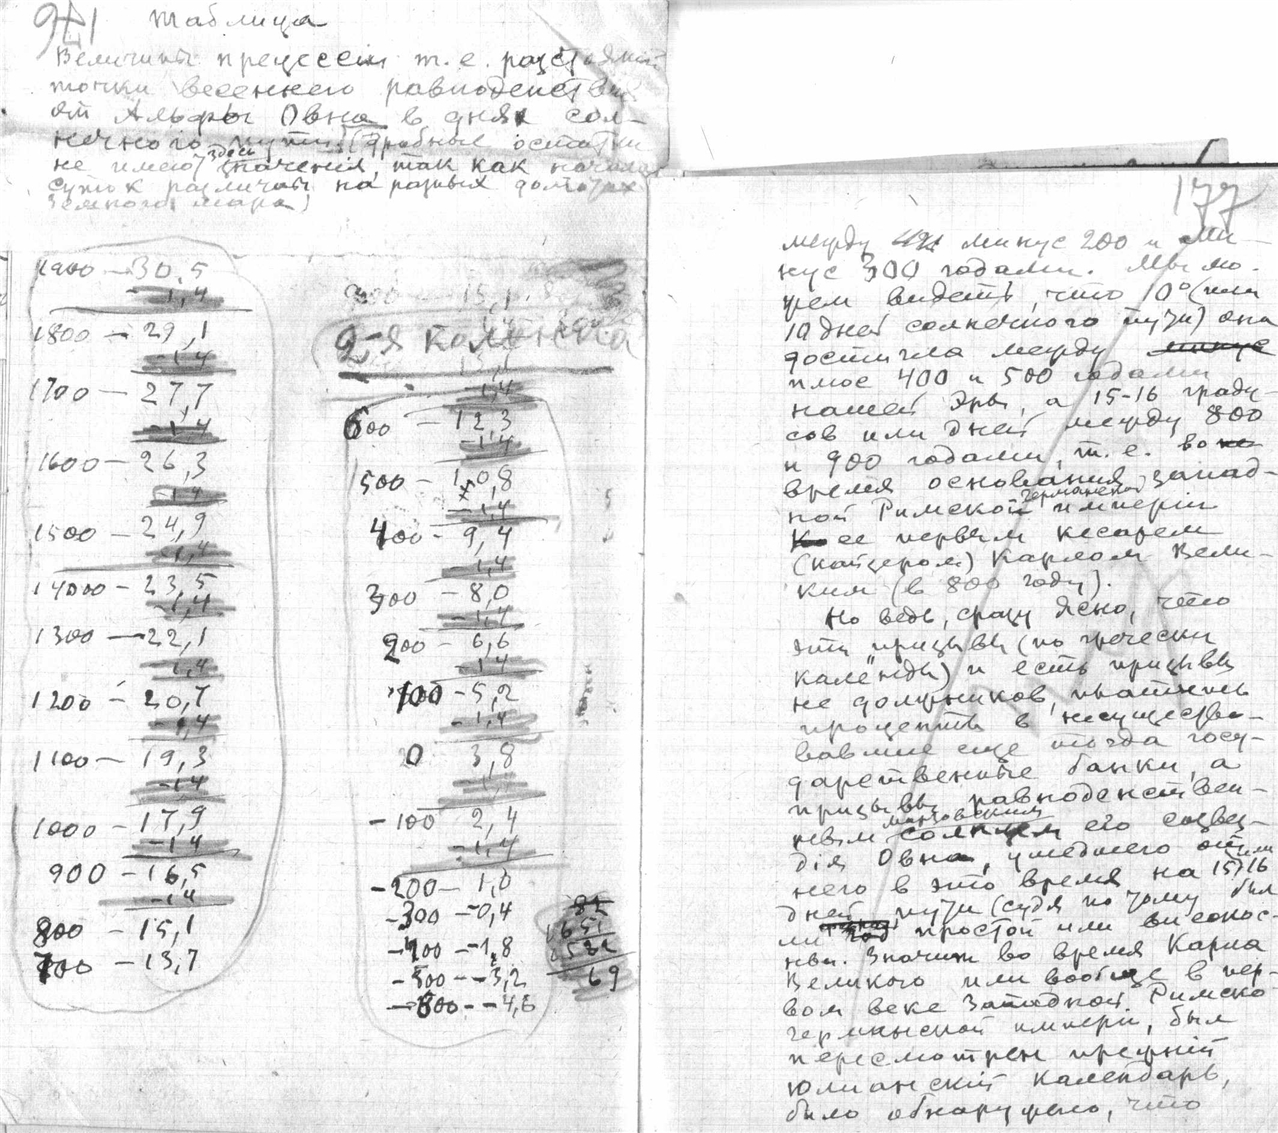 921 Таблица
Величины прецессии т.е. разстояний
точки весеннего равноденствия
от Альфы Овна в днях сол-
нечного пути (дробные остатки
не имеют здесь значения, так как начала
суток различны на разных долготах
земного шара)
1900 — 30,5
1,4
1800 — 29,1
1,4
1700 — 27,7
1,4
1600 — 26,3
1,4
1500 — 24,9
1,4
1400 — 23,5
1,4
1300 — 22,1
1,4
1200 — 20,7
1,4
1100 — 19,3
1,4
1000 — 17,9
1,4
900 — 16,5
1,4
800 — 15,1
700 — 13,7
15,1
2-я колонка
1,4
600 — 12,3
1,4
500 — 10,8
1,4
400 — 9,4
1,4
300 — 8,0
1,4
200 — 6,6
1,4
100 — 5,2
1,4
0 3,8
-100 2,4
1,4
-200 — 1,0
-300 -0,4
-400 -1,8
-500 -3,2
-600 -4,6
69
177
между минус 200 и ми-
нус 300 годами. Мы мо-
жем видеть, что 10° (или
10 дней солнечного пути) она
достигла между минус
плюс 400 и 500 годами
нашей эры, а 15-16 граду-
сов или дней между 800
и 900 годами, т. е. во
время основания запад-
ной Римской германской империи
ее первым кесарем
(кайзером) Карлом Вели-
ким (в 800 году).
Но ведь, сразу ясно, что
эти призывы (по гречески
календы) и есть призывы
не должников, платить
проценты в несущество-
вавшие еще тогда госу-
дарственные банки, а
призывы равноденствен-
ным солнцем его созвез-
дія Овна, ушедшего от
него в это время на 15 или 16
дней пути (судя по тому был
ли год простой или високос-
ный. Значит во время Карла
Великого или вообще в пер-
вом веке Западной Римско-
германской империи, был
пересмотрен прежній
юлианскій календарь,
было обнаружено, что